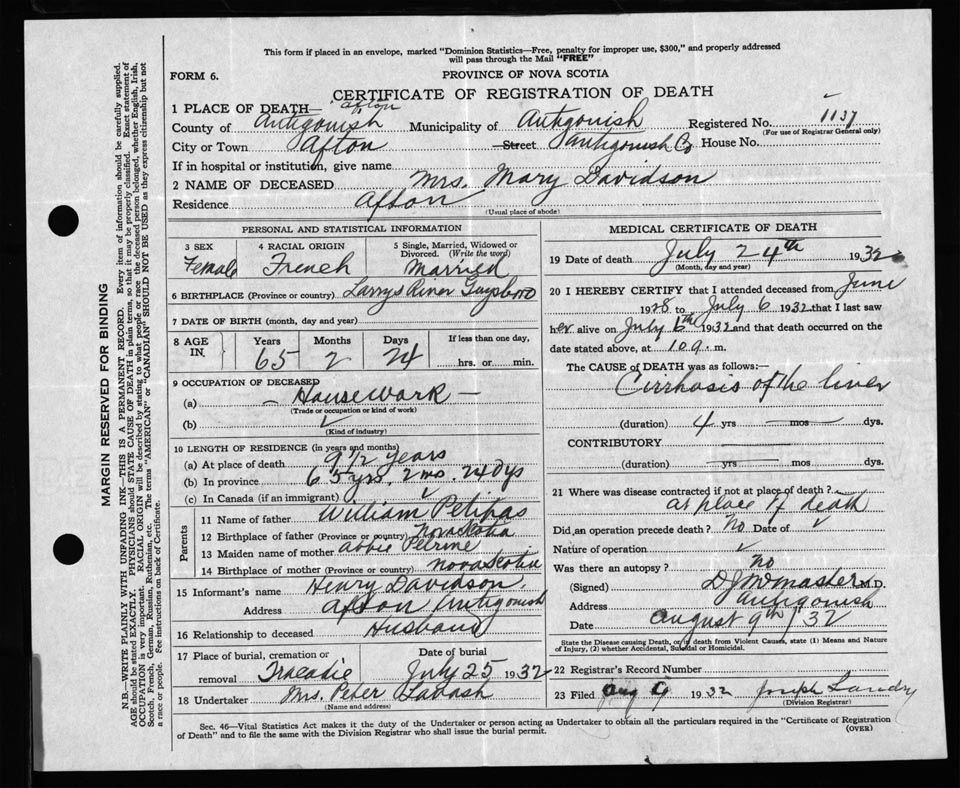 This form if placed in an envelope, marked "Dominion Statistics—Free, penalty for improper use, $300," and properly addressed
will pass through the Mail "FREE"
FORM 6.
PROVINCE OF NOVA SCOTIA
CERTIFICATE OF REGISTRATION OF DEATH
1 PLACE OF DEATH— Afton
County of Antigonish Municipality of Antigonish Registered No. 1137
(For use of Registrar General only)
City or Town Afton Street Antigonish Co House No.
If in hospital or institution, give name
2 NAME OF DECEASED Mrs. Mary Davidson
Residence Afton
(Usual place of abode)
PERSONAL AND STATISTICAL INFORMATION
3 SEX
Female
4 RACIAL ORIGIN
French
5 Single, Married, Widowed or
Divorced. (Write the word)
Married
6 BIRTHPLACE (Province or country) Larrys River Guysboro
7 DATE OF BIRTH (month, day and year)
8 AGE IN
Years Months Days If less than one day,
65 2 24 hrs. or min.
9 OCCUPATION OF DECEASED
(a) — Housework —
(Trade or occupation or kind of work)
(b) ✓
(Kind of industry)
10 LENGTH OF RESIDENCE (in years and months)
(a) At place of death 9 1/2 years
(b) In province 65 yrs, 2 mo. 24 dys
(c) In Canada (if an immigrant) ✓
Parents
11 Name of father William Petipas
12 Birthplace of father (Province or country) Nova Scotia
13 Maiden name of mother Abbie Petrine
14 Birthplace of mother (Province or country) Nova Scotia
15 Informant's name Henry Davidson,
Address Afton Antigonish
16 Relationship to deceased Husband
17 Place of burial, cremation or Date of burial
removal Tracadie July 25 1932
18 Undertaker Mrs. Peter
(Name and address)
MEDICAL CERTIFICATE OF DEATH
19 Date of death July 24th 1932
(Month, day and year)
20 I HEREBY CERTIFY that I attended deceased from June
1928 to July 6 1932 and that I last saw
her alive on July 6th 1932 and that death occurred on the
date stated above, at 10 a. m.
The CAUSE of DEATH was as follows:—
Cirrhosis of the liver
(duration) 4 yrs — mos — dys.
CONTRIBUTORY
(duration) — yrs — mos. — dys.
21 Where was disease contracted if not at place of death?
at place of death
Did an operation precede death? No Date of ✓
Nature of operation ✓
Was there an autopsy? No
(Signed) M.D.
Address Antigonish
Date August 9th / 32
State the Disease causing Death, or in death from Violent Causes, state (1) Means and Nature
of Injury, (2) whether Accidental, Suicidal or Homicidal.
22 Registrar's Record Number
23 Filed Aug 9 1932 Joseph Landry
(Division Registrar)
Sec. 46—Vital Statistics Act makes it the duty of the Undertaker or person acting as Undertaker to obtain all the particulars required in the "Certificate of Registration
of Death" and to file the same with the Division Registrar who shall issue the burial permit.
(OVER)
MARGIN RESERVED FOR BINDING
N.B.—WRITE PLAINLY WITH UNFADING INK—THIS IS A PERMANENT RECORD. Every item of information should be carefully supplied.
AGE should be stated EXACTLY. PHYSICIANS should STATE CAUSE OF DEATH in plain terms, so that it may be properly classified. Exact statement of
OCCUPATION is very important. RACIAL ORIGIN will be described by stating to what people or race the deceased person belonged, whether English, Irish,
Scotch, French, German, Russian, Ruthenian, etc. The terms "AMERICAN" or "CANADIAN" SHOULD NOT BE USED as they express citizenship but not
a race or people. Fee instructions on back of Certificate.